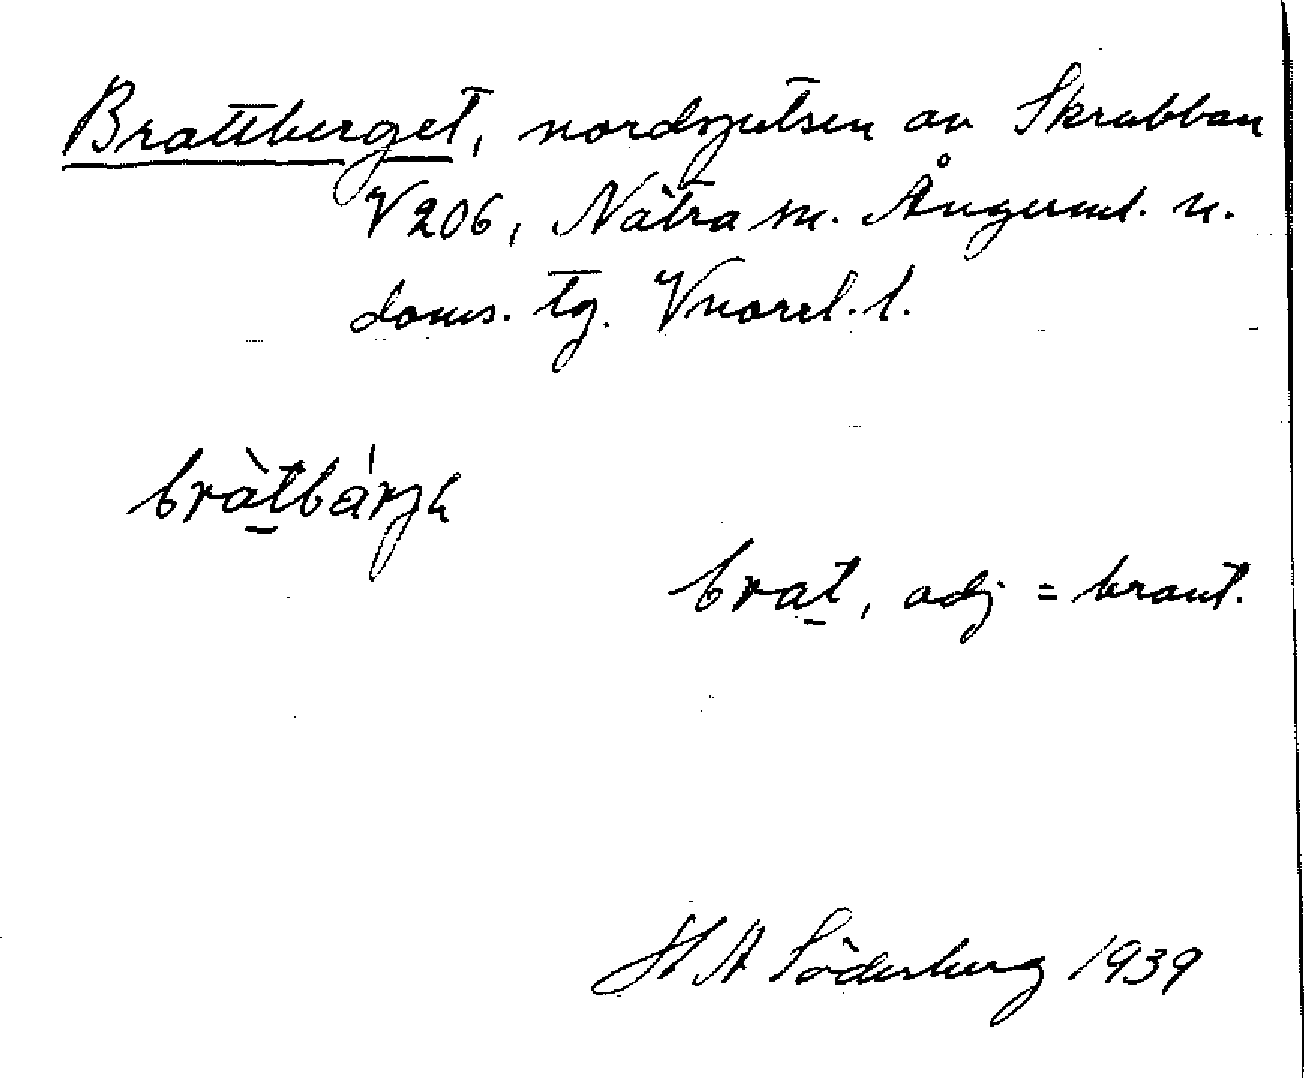 Brattberget, nordspetsen av Skrubban
V 206, Nätra sn. Ångerml. n.
doms. tg. Vnorrl. l.
bràtbárjh
brat, adj = brant.
H A Söderberg 1939